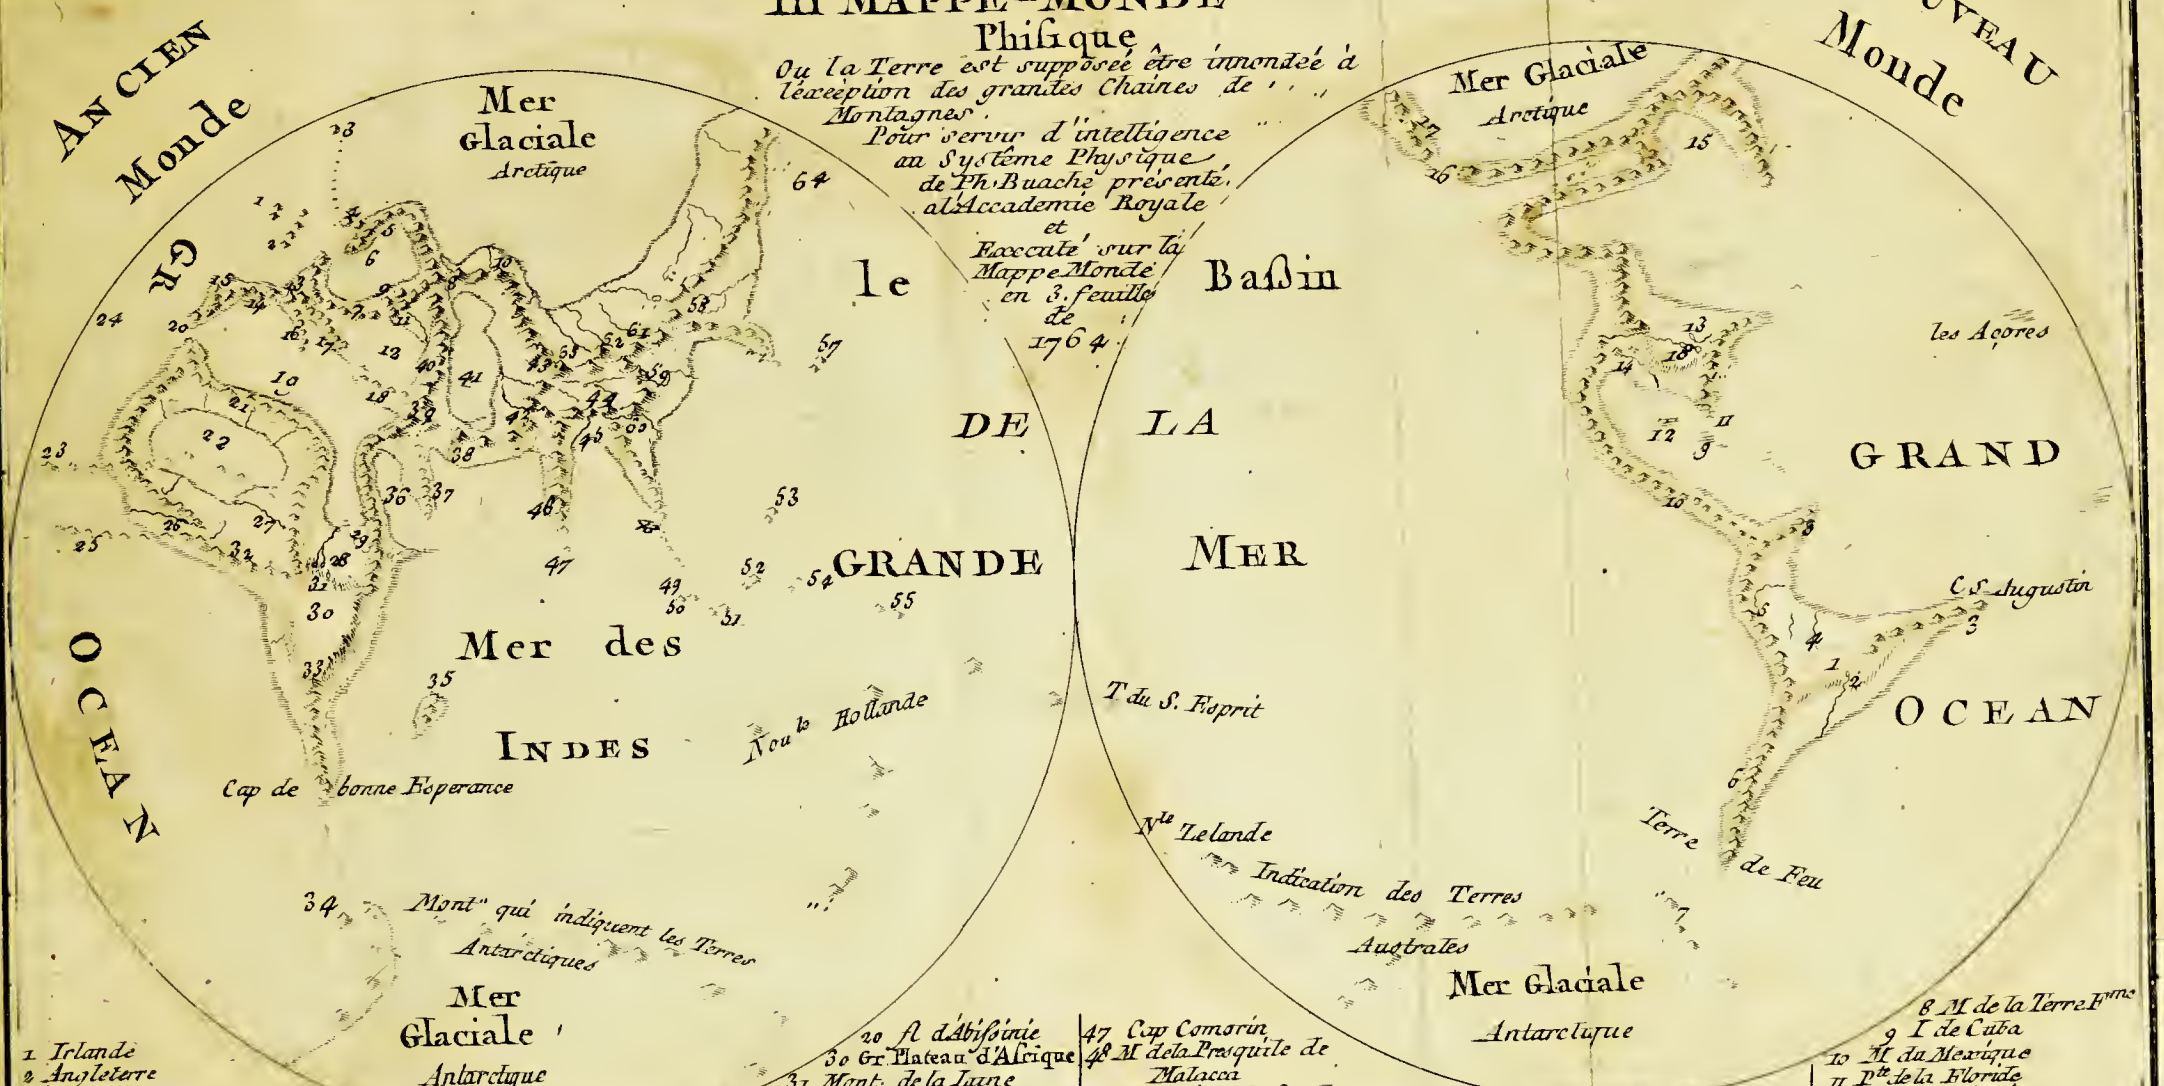 III MAPPE-MONDE
Phisique
Ou la Terre est supposée être innondeé à
lexeèption des grandes Chaines de
Montagnes.
Pour servir d'intelligence
au Systême Physique
de Ph. Buache présenté
al'Accademie Royale
et
Executé sur la
Mappe Monde
en 3. feuille
de
1764.
ANCIEN
Monde
UVEAU
Monde
Mer
Glaciale
Arctique
Mer Glaciale
Arctique
GR
OCEAN
le Baſſin
DE LA
GRANDE MER
les Açores
GRAND
OCEAN
C S. Augustin
Mer des
INDES
Nou.le Hollande
T du S. Esprit
Cap de bonne Esperance
N.le Zelande
Terre de Feu
Indication des Terres
Australes
Mont.s qui indiquent les Terres
Antarctiques
Mer
Glaciale
Antarctique
Mer Glaciale
Antarctique
3
1
2
4
5
6
7
8
9
10
11
12
13
14
15
16
17
18
19
20
21
22
23
24
25
26
27
28
29
30
31
32
33
34
35
36
37
38
39
40
41
42
43
44
45
46
47
49
50
51
52
53
54
55
57
58
59
60
61
64
17
16
15
13
18
14
12
11
9
10
8
3
4
1
2
6
7
1 Irlande
2 Angleterre
20 fl d'Abiſſinie
30 Gr. Plateau d'Afrique
31 Mont. de la Lune
47 Cap Comorin
48 M de la Presquile de
Malacca
8 M de la Terre F.me
9 I de Cuba
10 M du Mexique
11 P.te de la Floride